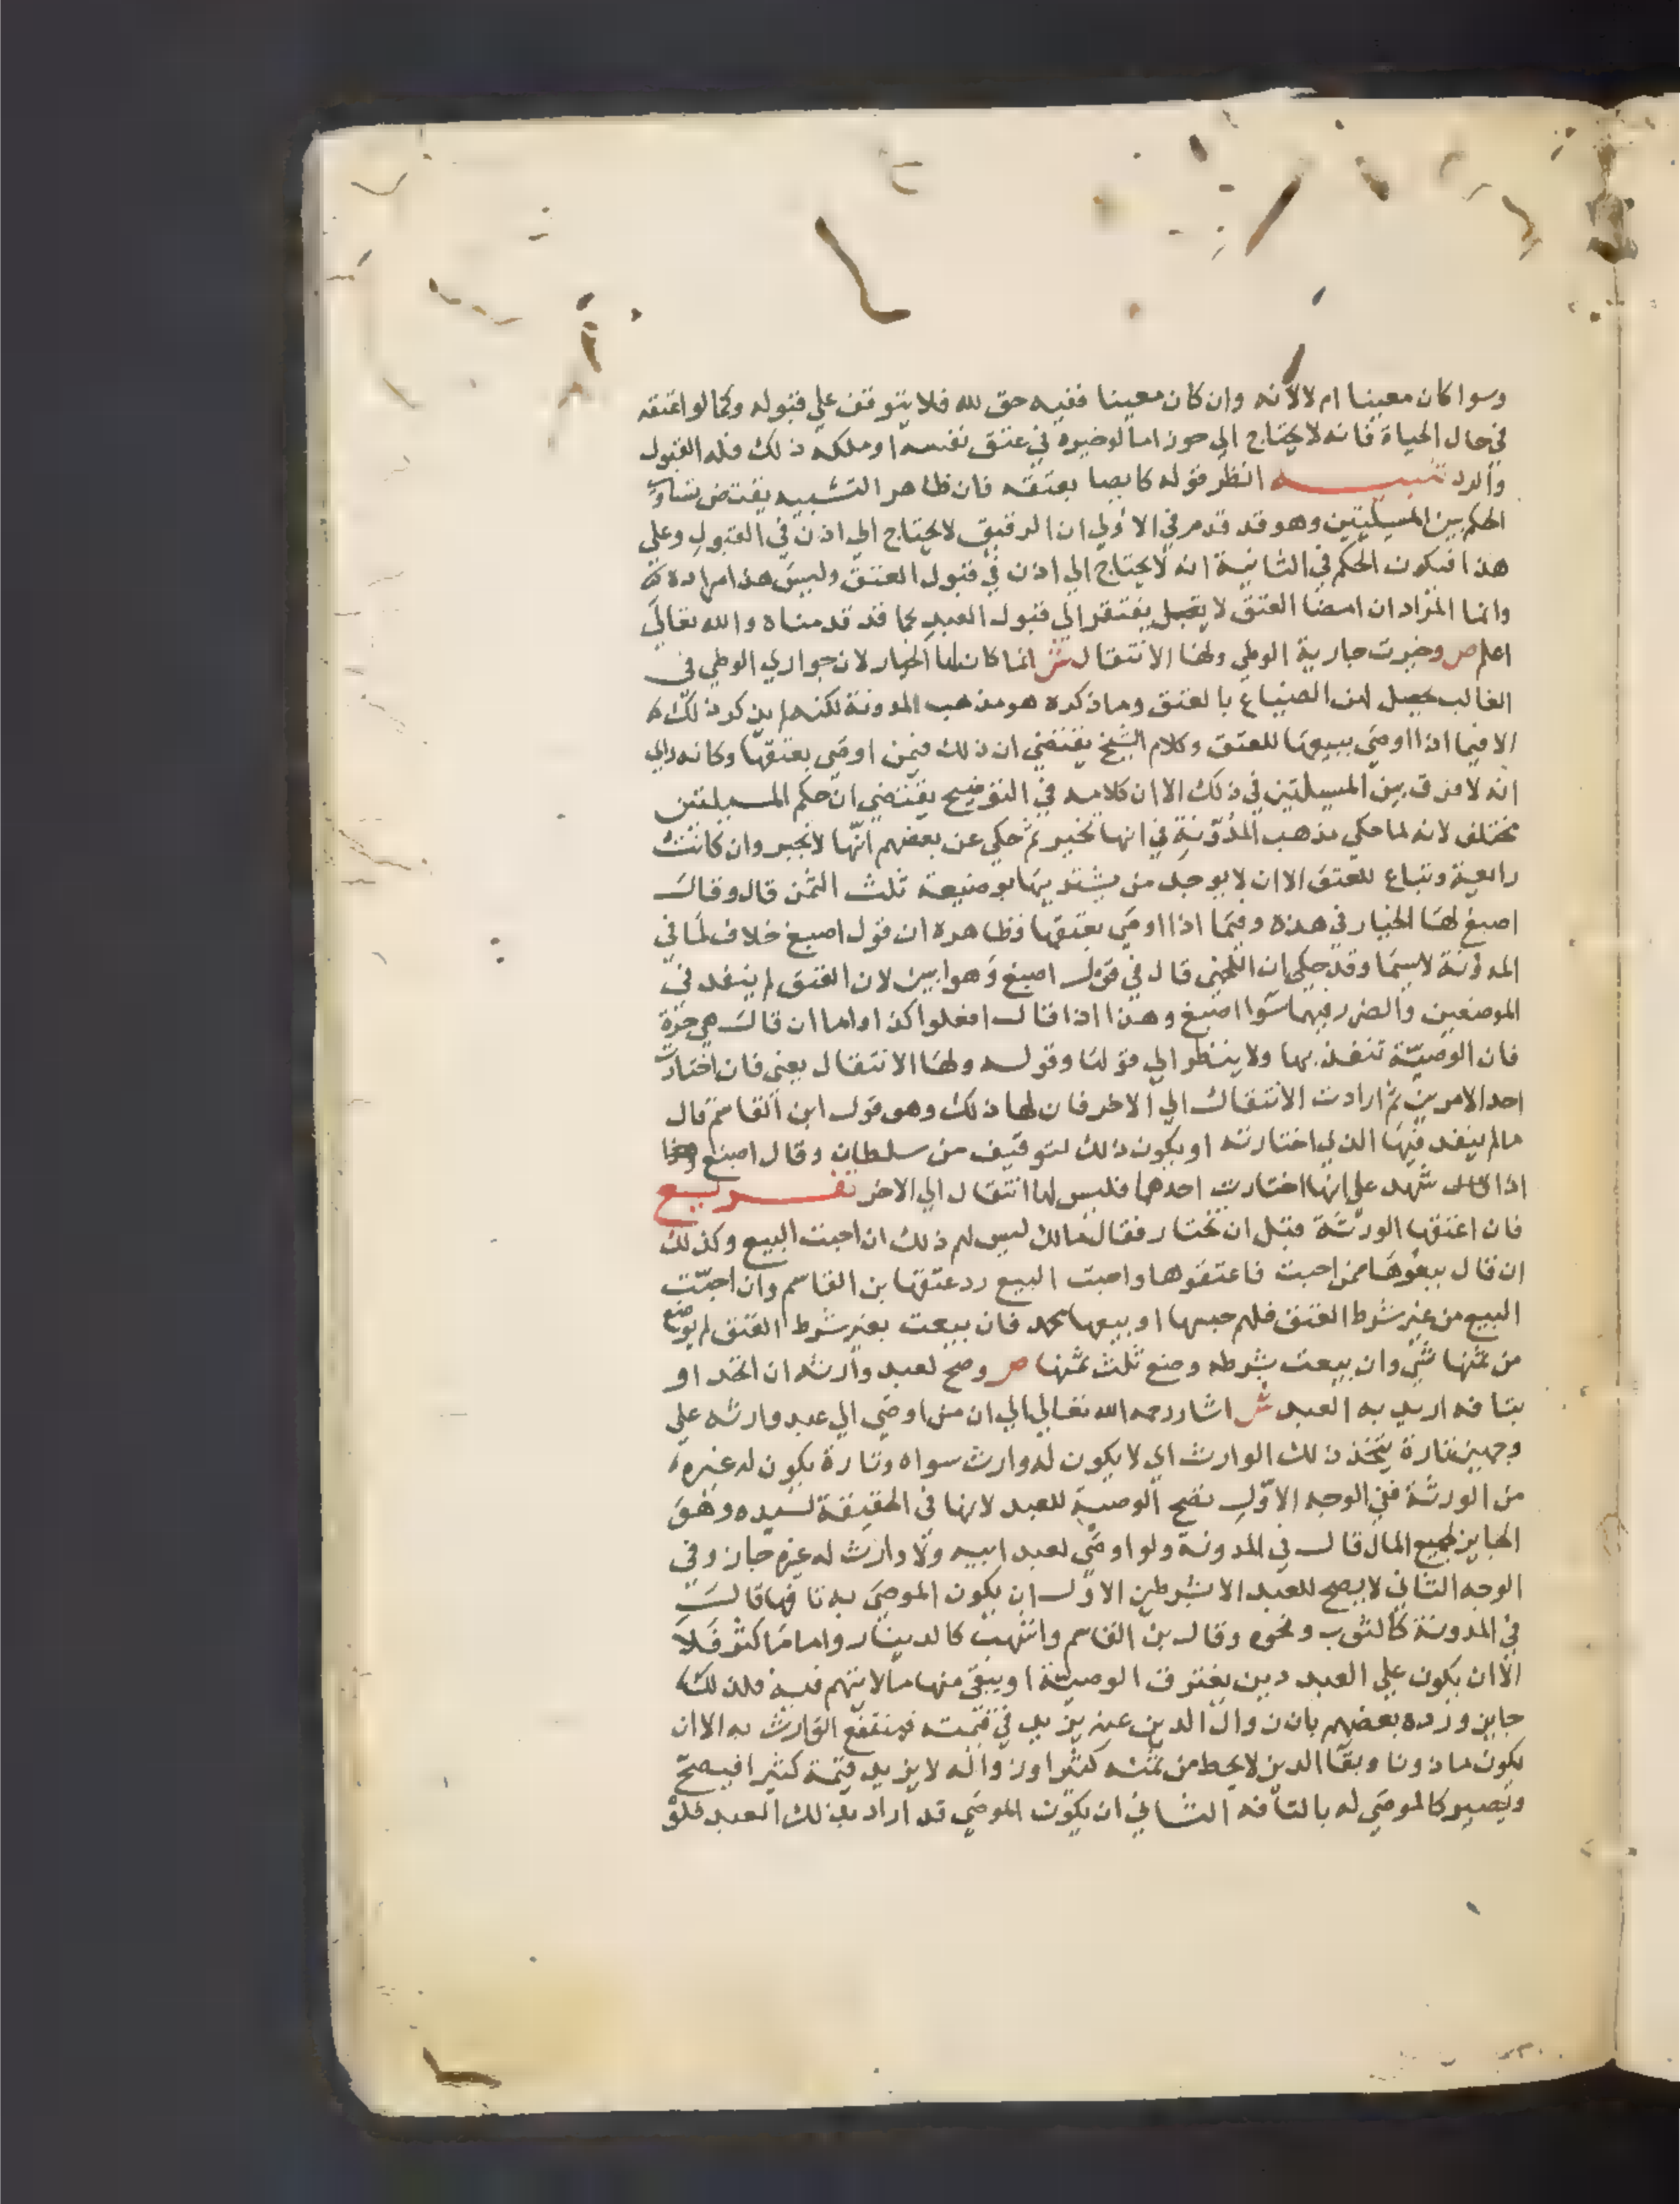 وسوا كان معينا ام لا لانه وان كان معينا ففيه حق لله فلا يتوقف علي قبوله وكما لو اعتقه
في حال الحياة فانه لا يحتاج الي حوز اما لو خيره في عتق نفسه او ملكه ذلك فله القبول
والرد تنبيه انظر قوله كايصا بعتقه فان ظاهر التشبيه يقتضي تساوي
الحكم بين المسيلتين وهو قد قدم في الاولي ان الرقيق لا يحتاج الي اذن في القبول وعلي
هذا فيكون الحكم في الثانية انه لا يحتاج الي اذن في قبول العتق وليس هذا مراده
وانما المراد ان امضا العتق لا يفتقر الي قبول العبد كما قد قدمناه والله تعالي
اعلم ص وخيرت جارية الوطي ولها الانتقال ش انما كان لها الخيار لان جواري الوطي في
الغالب يحصل لهن الضياع بالعتق وما ذكره هو مذهب المدونة لكنه لم يذكر ذلك
الا فيما اذا اوصي ببيعها للعتق وكلام الشيخ يقتضي ان ذلك فيمن اوصي بعتقها وكانه راي
انه لا فرق بين المسيلتين في ذلك الا ان كلامه في التوضيح يقتضي ان حكم المسيلتين
مختلف لانه لما حكي مذهب المدونة في انها تخير ثم حكي عن بعضهم انها لا تخير وان كانت
رايعة وتباع للعتق الا ان لا يوجد من يشتريها بوضيعة ثلث الثمن قال وقال
اصبغ لها الخيار في هذه وفيما اذا اوصي بعتقها فظاهره ان قول اصبغ خلاف لما في
المدونة لا سيما وقد حكي ان اللخمي قال في قول اصبغ وهو ابين لان العتق لم ينفد في
الموضعين والضرر فيهما سوا اصبغ وهذا اذا قال افعلوا كذا واما ان قال هي حرة
فان الوصية تنفذ بها ولا ينظر الي قولها وقوله ولها الانتقال يعني فان اختارت
احد الامرين ثم ارادت الانتقال الي الاخر فان لها ذلك وهو قول ابن القاسم قال
مالم ينفد فيها الذي اختارته او يكون ذلك بتوقيف من سلطان وقال اصبغ وهذا
اذا شهد علي انها اختارت احدهما فليس لها انتقال الي الاخر تفريع
فان اعتقها الورثة قبل ان تختار فقال مالك ليس لهم ذلك ان احبت البيع وكذلك
ان قال بيعوها ممن احبت فاعتقوها واحبت البيع رد عتقها بن القاسم وان احبت
البيع من غير شرط العتق فلهم حبسها او بيعها محمد فان بيعت بغير شرط العتق لم يوضع
من ثمنها شي وان بيعت بشرطه وضع ثلث ثمنها ص وصح لعبد وارثه ان اتحد او
بتافه اريد به العبد ش اشار رحمه الله تعالي الي ان من اوصي الي عبد وارثه علي
وجهين تارة يتخذ ذلك الوارث اي لا يكون له وارث سواه وتارة يكون له غيره
من الورثة ففي الوجه الاول تصح الوصية للعبد لانها في الحقيقة لسيده وهو
الحايز لجميع المال قال في المدونة ولو اوصي لعبد ابيه ولا وارث له غيره جاز وفي
الوجه الثاني لا يصح للعبد الا بشرطين الاول ان يكون الموصي به تافها قال
في المدونة كالثوب ونحوه وقال بن القاسم واشهب كالدينار واما ما كثر فلا
الا ان يكون علي العبد دين يغترف الوصية او يبقي منها ما لا يتهم فيه فذلك
جايز ورده بعضهم بان زوال الدين عنه يزيد في قيمته فينتفع الوارث به الا ان
يكون ماذونا وبقا الدين لا يحط من ثمنه كثيرا وزواله لا يزيد قيمة كثيرا فيصح
ويصير كالموصي له بالتافه الثاني ان يكون الموصي قد اراد بذلك العبد فلو